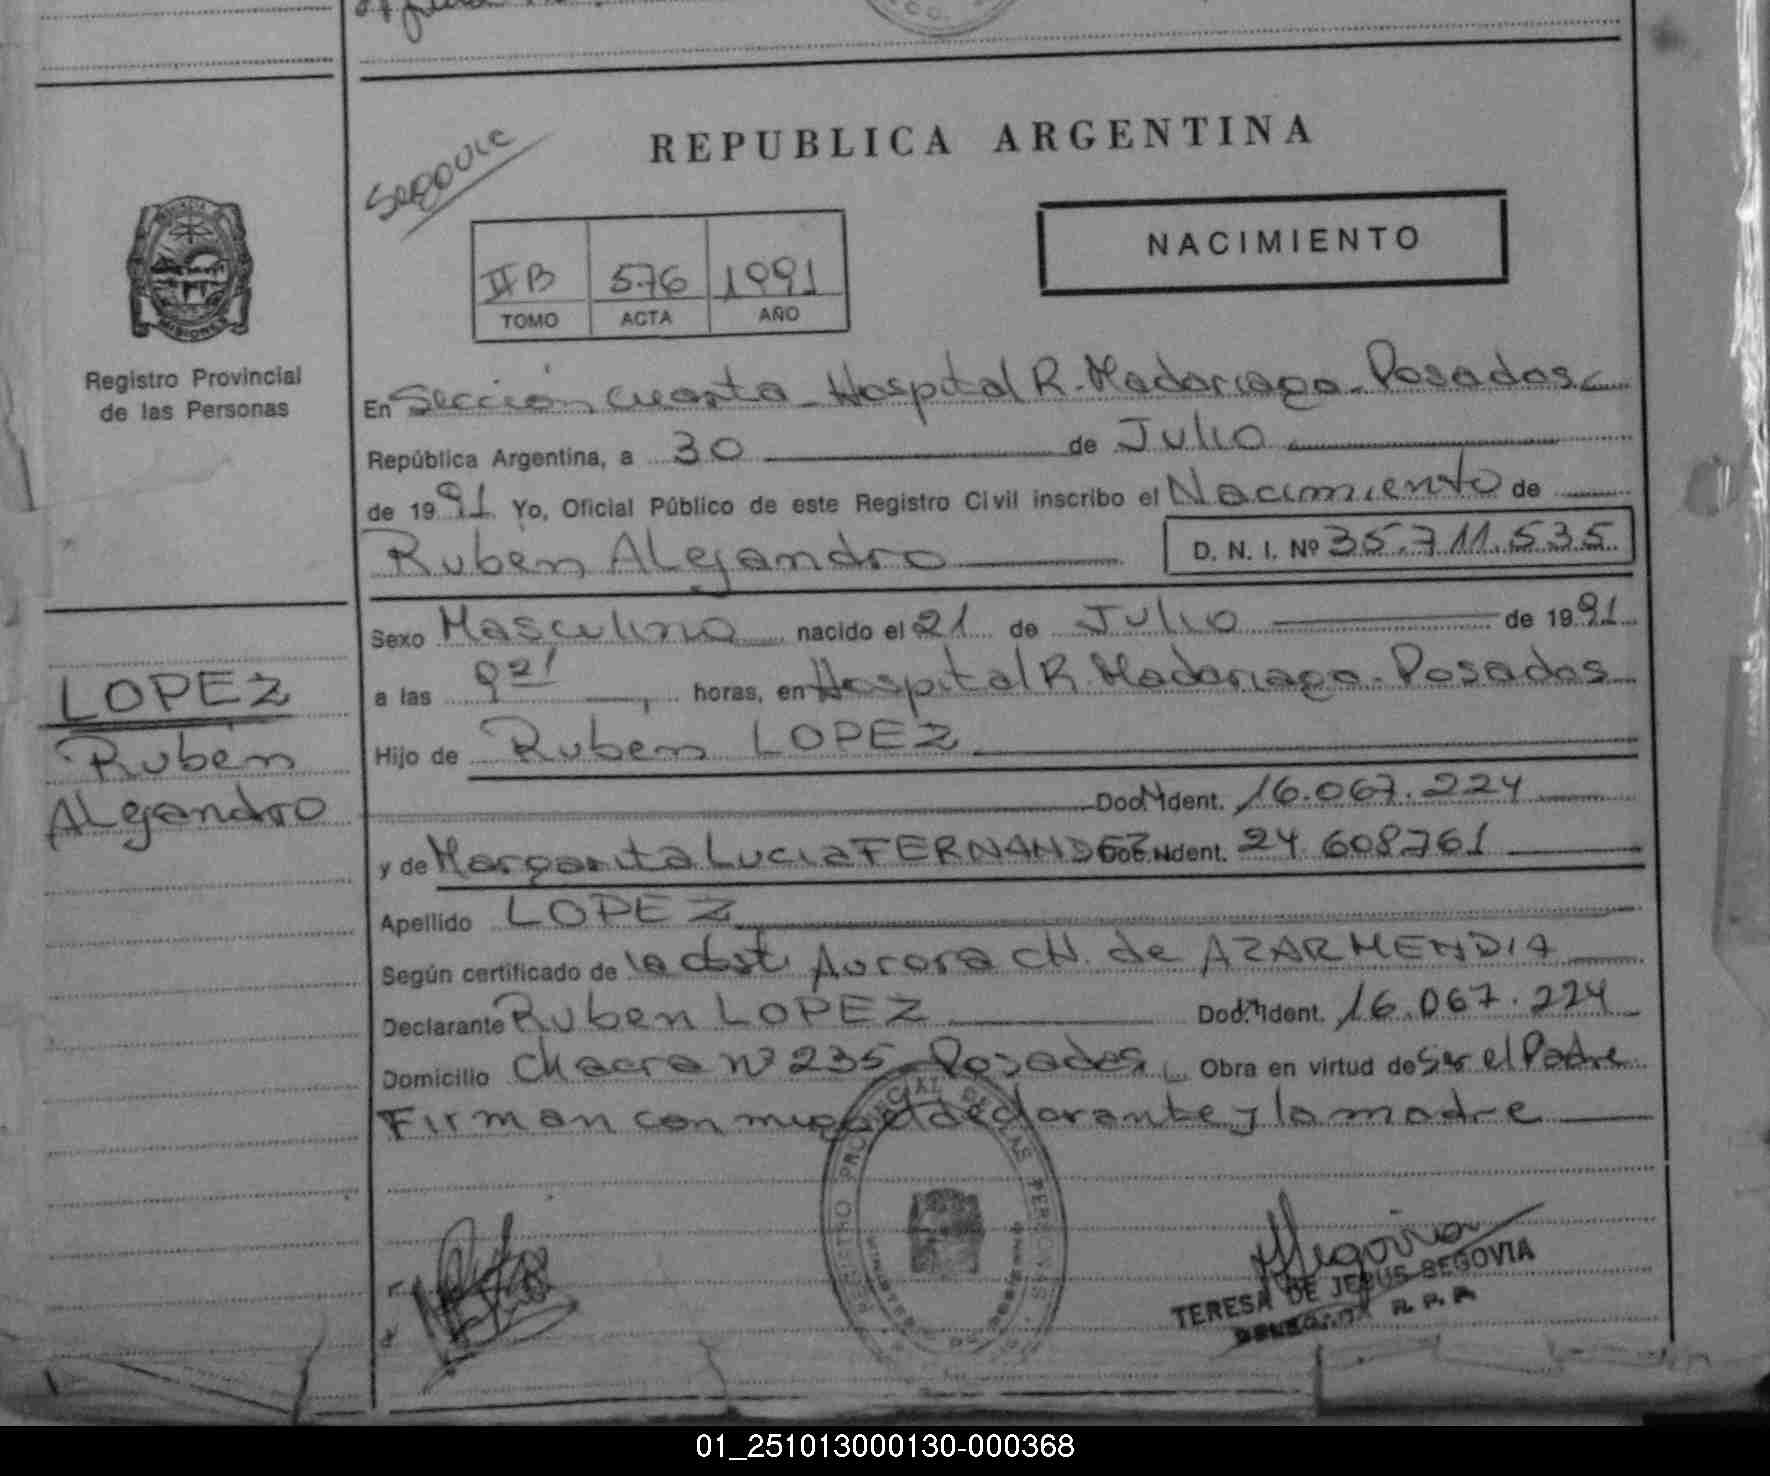 REPUBLICA ARGENTINA
NACIMIENTO
II B 576 1991
TOMO ACTA AÑO
MISIONES
Registro Provincial
de las Personas
En Sección cuarta - Hospital R. Madariaga - Posadas
República Argentina, a 30 de Julio
de 1991 Yo, Oficial Público de este Registro Civil inscribo el Nacimiento de
Rubén Alejandro D. N. I. Nº 35.711.535
Sexo Masculino nacido el 21 de Julio de 1991
a las 9 21 horas, en Hospital R. Madariaga - Posadas
Hijo de Rubén LOPEZ
Doc. Ident. 16.067.224
y de Margarita Lucia FERNANDEZ Doc. Ident. 24.608761
Apellido LOPEZ
Según certificado de la obst. Aurora CH. de AZARMENDIA
Declarante Ruben LOPEZ Doc. Ident. 16.067.224
Domicilio Chacra Nº 235 - Posadas Obra en virtud de Ser el Padre
Firman con migo el declarante y la madre
LOPEZ
Rubén
Alejandro
REGISTRO PROVINCIAL DE LAS PERSONAS
Segovia
TERESA DE JESUS SEGOVIA
R. P. P.
01_251013000130-000368